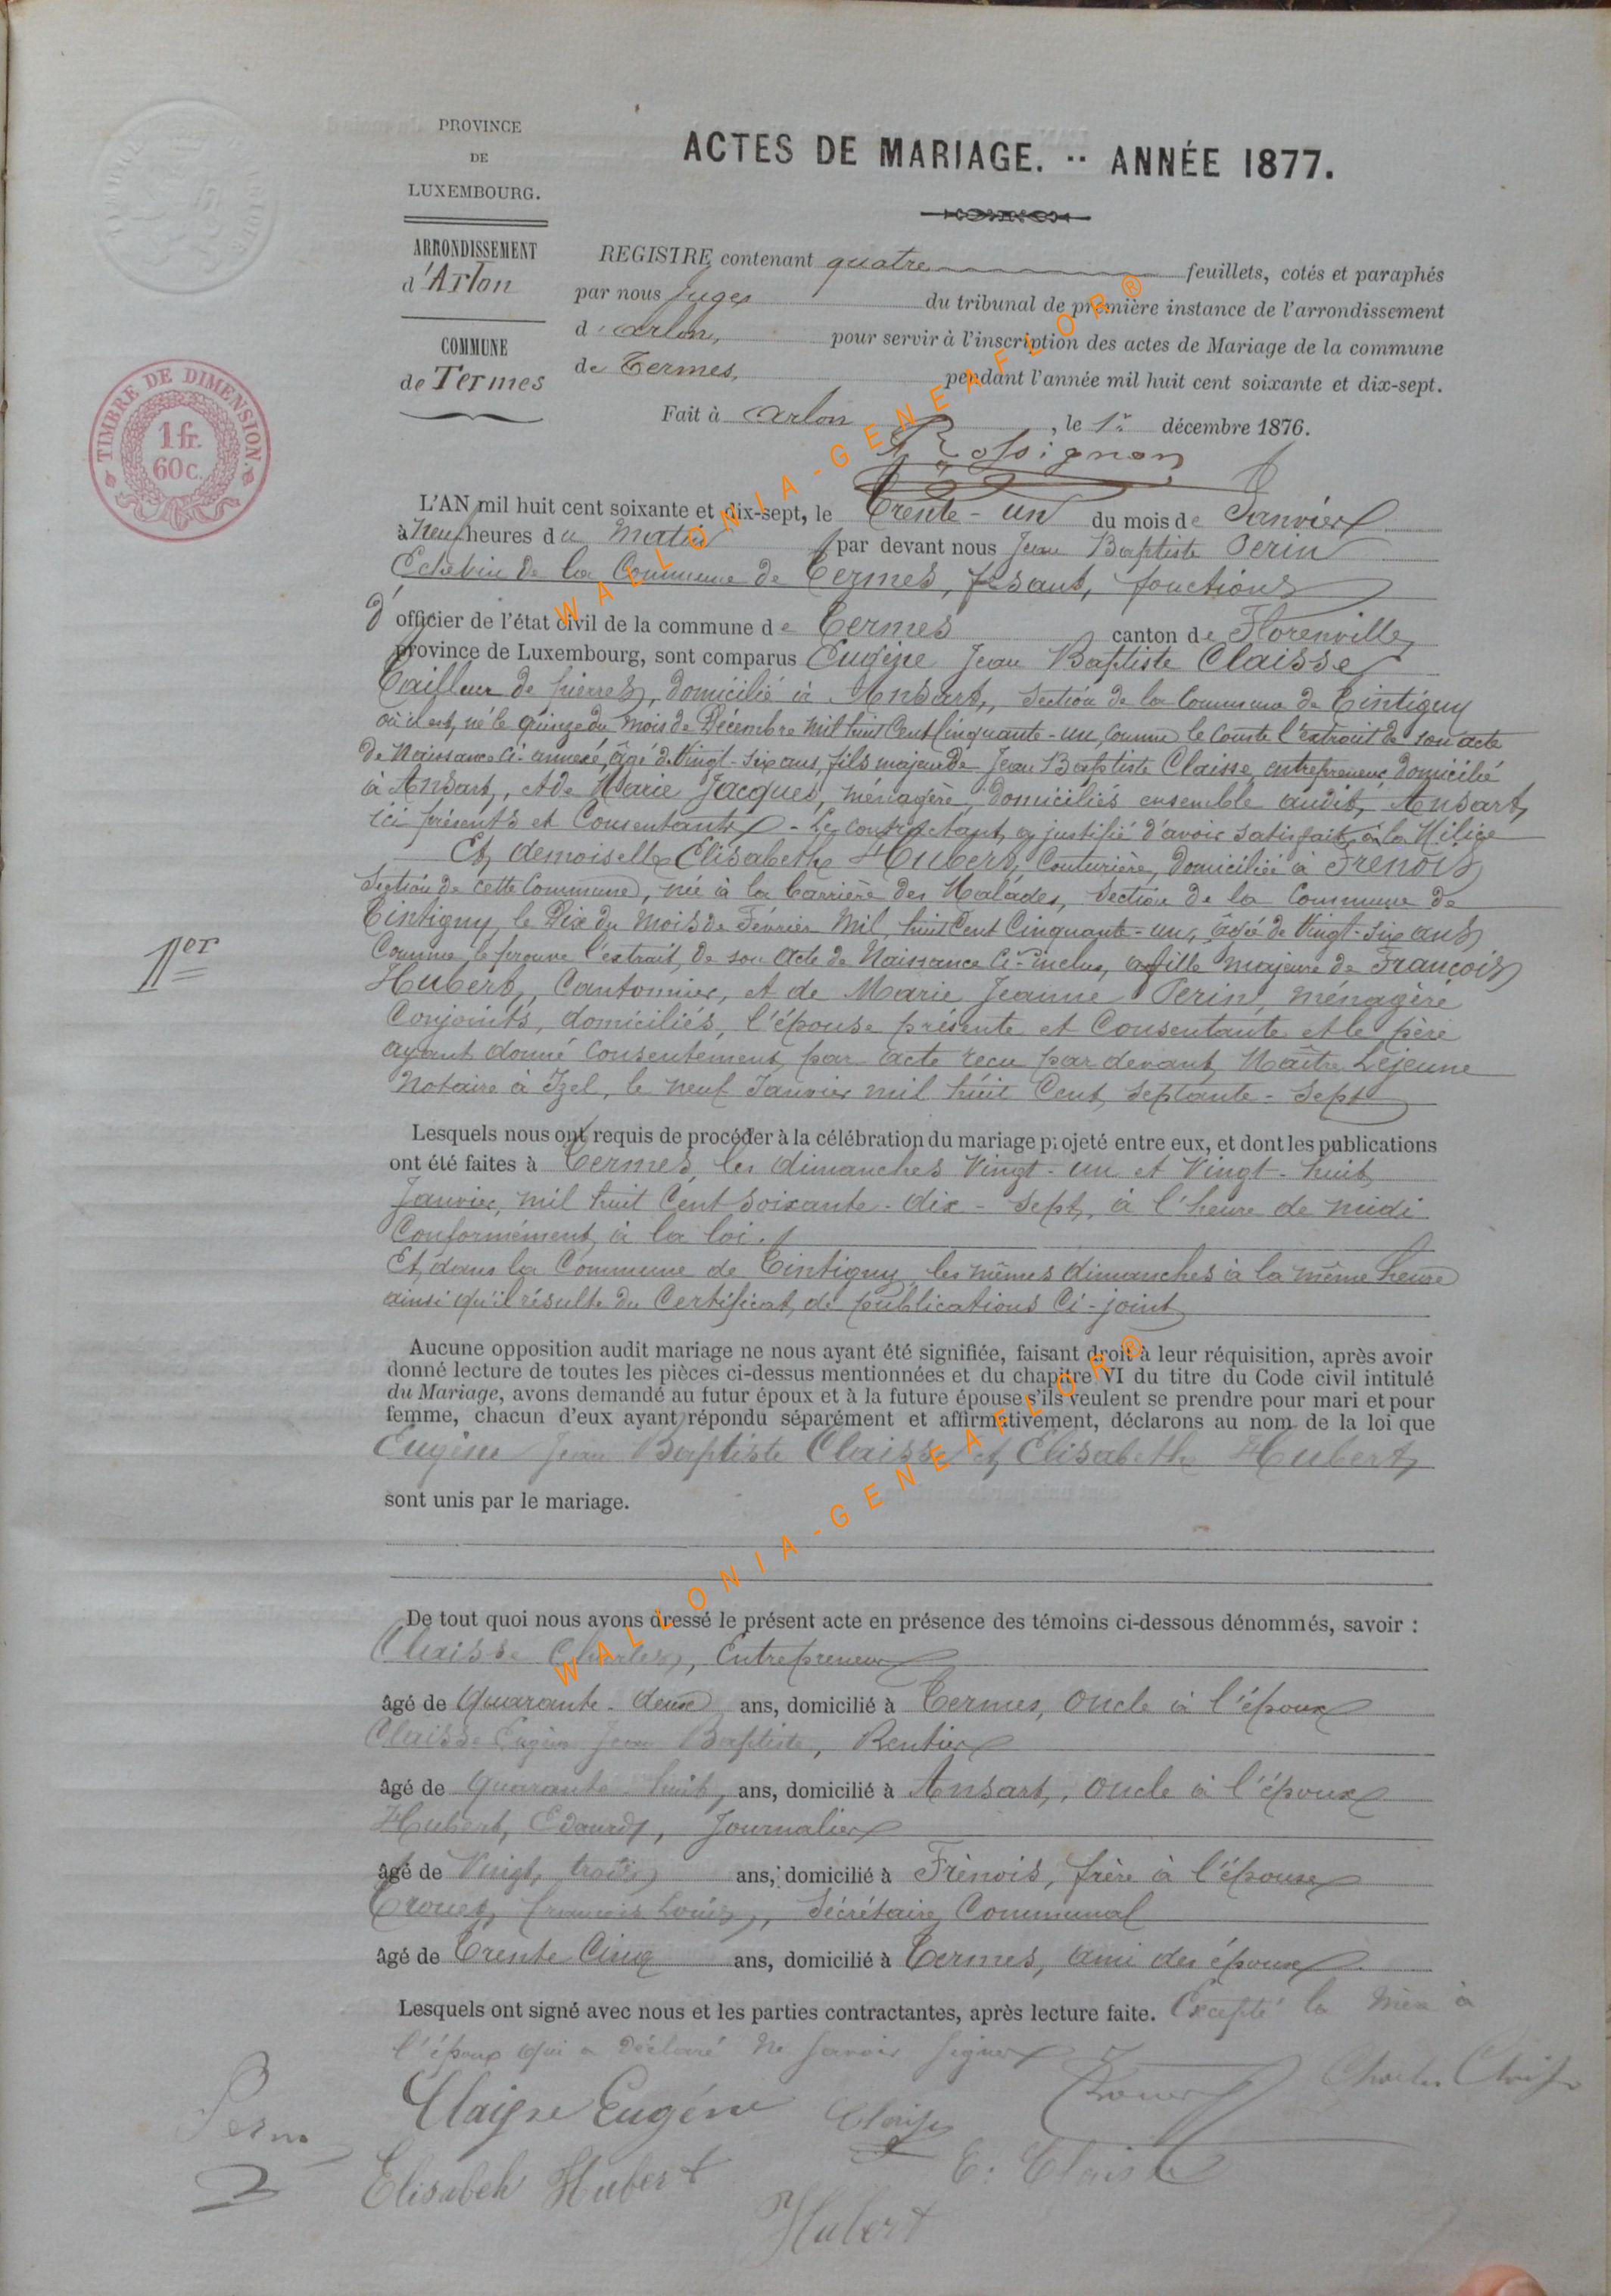 PROVINCE
DE
LUXEMBOURG.
ARRONDISSEMENT
d'Arlon
COMMUNE
de Termes
TIMBRE DE DIMENSION.
1 fr.
60 c.
ACTES DE MARIAGE. -- ANNÉE 1877.
REGISTRE contenant quatre feuillets, cotés et paraphés
par nous Juge du tribunal de première instance de l'arrondissement
d'arlon, pour servir à l'inscription des actes de Mariage de la commune
de Termes, pendant l'année mil huit cent soixante et dix-sept.
Fait à arlon, le 1er décembre 1876.
Rossignon
1er
L'AN mil huit cent soixante et dix-sept, le Trente-un du mois de Janvier
à Neuf heures du Matin par devant nous Jean Baptiste Perin
Echevin de la Commune de Termes, fesant, fonctions
d'officier de l'état civil de la commune de Termes canton de Florenville,
province de Luxembourg, sont comparus Eugène Jean Baptiste Claisse
Tailleur de pierres, domicilié à Ansart, Section de la Commune de Tintigny
où il est, né le quinze du mois de Décembre mil huit Cent Cinquante-un, comme le Conste l'extrait de son acte
de Naissance Ci-annexé, âgé de Vingt-six ans, fils majeur de Jean Baptiste Claisse, entrepreneur domicilié
à Ansart, et de Marie Jacques, ménagère, domiciliés ensemble audit, Ansart,
ici présents et Consentants - Le contractant a justifié d'avoir satisfait à la Milice
Et, demoiselle Elisabeth Hubert, Couturière, domiciliée à Frenois
Section de cette Commune, née à la Carrière des Malades, Section de la Commune de
Tintigny, le Dix du Mois de Février Mil, huit Cent Cinquante-un, âgée de Vingt-six ans
Comme le prouve l'extrait, de son Acte de Naissance Ci-inclus, fille Majeure de François
Hubert, Cantonnier, et de Marie Jeanne Perin, ménagère
Conjoints, domiciliés, l'épouse présente et Consentante et le père
ayant donné Consentement, par acte reçu par devant, Maître Lejeune
Notaire à Izel, le neuf Janvier mil huit Cent, Septante-Sept
Lesquels nous ont requis de procéder à la célébration du mariage projeté entre eux, et dont les publications
ont été faites à Termes, les dimanches Vingt-un et Vingt-huit,
Janvier, mil huit Cent Soixante-dix-Sept, à l'heure de midi
Conformément, à la loi.
Et, dans la Commune de Tintigny les mêmes dimanches à la même heure
ainsi qu'il résulte du Certificat, de publications Ci-joint
Aucune opposition audit mariage ne nous ayant été signifiée, faisant droit à leur réquisition, après avoir
donné lecture de toutes les pièces ci-dessus mentionnées et du chapitre VI du titre du Code civil intitulé
du Mariage, avons demandé au futur époux et à la future épouse s'ils veulent se prendre pour mari et pour
femme, chacun d'eux ayant répondu séparément et affirmativement, déclarons au nom de la loi que
Eugène Jean Baptiste Claisse et, Elisabeth Hubert,
sont unis par le mariage.
De tout quoi nous avons dressé le présent acte en présence des témoins ci-dessous dénommés, savoir :
Claisse Charles, Entrepreneur
âgé de Quarante-deux ans, domicilié à Termes, Oncle à l'époux
Claisse Eugène Jean Baptiste, Rentier
âgé de Quarante huit, ans, domicilié à Ansart, Oncle à l'époux
Hubert, Edouard, Journalier
âgé de Vingt, trois ans, domicilié à Frénois, frère à l'épouse
François Louis, Sécrétaire Communal
âgé de Trente Cinq ans, domicilié à Termes, ami des époux
Lesquels ont signé avec nous et les parties contractantes, après lecture faite. Excepté la Mère à
l'époux qui a Déclaré ne Savoir Signer
Charles Claisse
Claisse Eugène
Claisse
Perin
E. Claisse
Elisabeh Hubert
Hubert
WALLONIA-GENEAFLOR®
WALLONIA-GENEAFLOR®